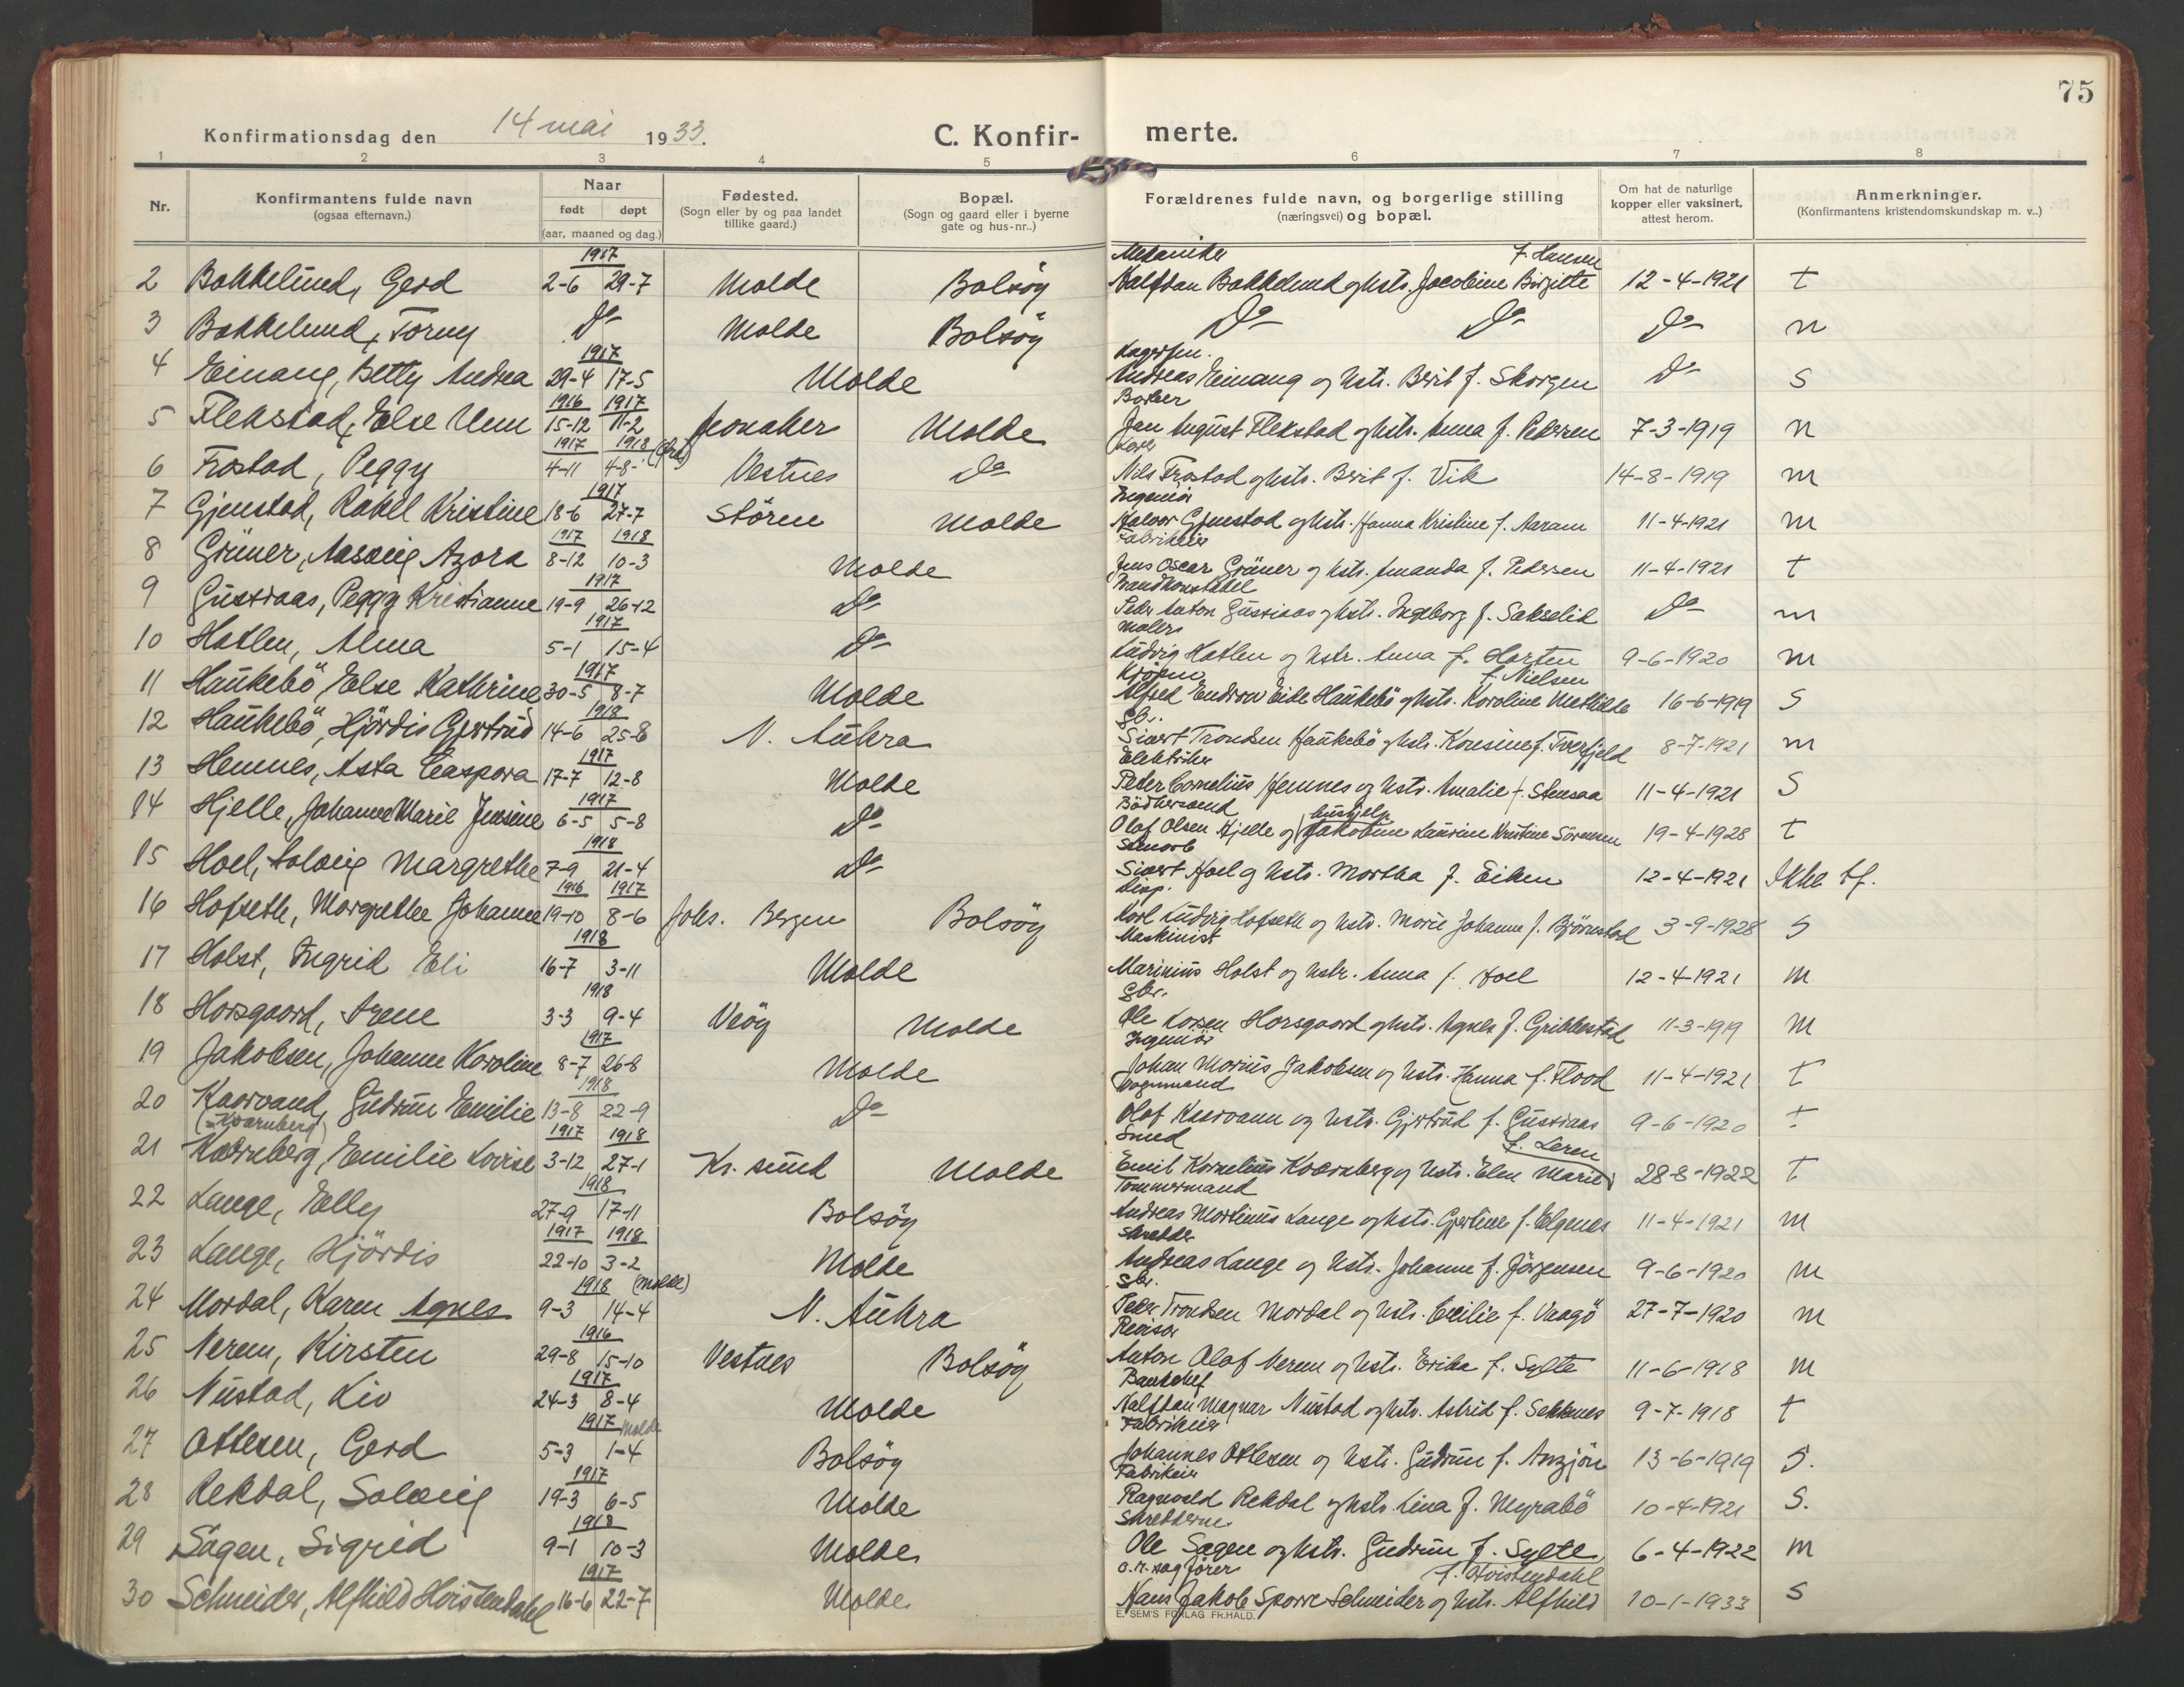 75
Konfirmationsdag den 14 mai 1933.
C. Konfir- merte.
1 2 3 4 5 6 7 8
Nr.
Konfirmantens fulde navn
(ogsaa efternavn.)
Naar
født døpt
(aar, maaned og dag.)
Fødested.
(Sogn eller by og paa landet
tillike gaard.)
Bopæl.
(Sogn og gaard eller i byerne
gate og hus-nr..)
Forældrenes fulde navn, og borgerlige stilling
(næringsvei) og bopæl.
Om hat de naturlige
kopper eller vaksinert,
attest herom.
Anmerkninger.
(Konfirmantens kristendomskundskap m. v..)
1917 Mekaniker f. Hansen
2 Bakkelund, Gerd 2-6 29-7 Molde Bolsöy Halfdan Bakkelund og hstr. Jacobine Birgitte 12-4-1921 t
3 Bakkelund, Torny Do Molde Bolsöy Do Do Do n
1917
4 Einang, Betty Andrea 29-4 17-5 Molde Andreas Einang og hstr. Berit f. Skorgen Do S
1916 1917 Barber
5 Flekstad, Else Unn 15-12 11-2 Molde Jan August Flekstad og hstr. Anna f. Pedersen 7-3-1919 n
1917 1918
6 Frostad, Peggy 4-11 4-8- Vestnes Do Nils Frostad og hstr. Berit f. Vik 14-8-1919 m
1917 Ingeniör
7 Gjenstad, Rakel Kristine 18-6 27-7 Stören Molde Halvor Gjenstad og hstr. Hanna Kristine f. Aaram 11-4-1921 m
1917 1918 Fabrikeier
8 Grüner, Aasaug Azora 8-12 10-3 Molde Jens Oscar Grüner og hstr. Amanda f. Pedersen 11-4-1921 t
1917 Brandkonstabel
9 Gussiaas, Peggy Kristianne 19-9 26-12 Do Peder Anton Gussiaas og hstr. Ingeborg f. Sakselid Do m
1917 Maler
10 Hatlen, Alma 5-1 15-4 Do Ludvig Hatlen og hstr. Anna f. Harten 9-6-1920 m
1917 f. Nielsen
11 Haukebö, Else Kathrine 30-5 8-7 Molde Alfred Endron Eide Haukebö og hstr. Karoline Mathilde 16-6-1919 S
1918 Gbr.
12 Haukebö, Hjördis Gjertrud 14-6 25-8 N. Aukra Sivert Trondsen Haukebö og hstr. Konsine f. Tverfjeld 8-7-1921 m
1917 Elektriker
13 Hemnes, Asta Caspara 17-7 12-8 Molde Peder Cornelius Hemnes og hstr. Amalie f. Stensaa 11-4-1921 S
1917 Bödkersvend hushjelp
14 Hjelle, Johanne Marie Jensine 6-5 5-8 Do Olaf Olsen Hjelle og Jakobine Laurine Kristine Sörensen 19-4-1928 t
1918
15 Hoel, Solveig Margrethe 7-9 21-4 Do Sivert Hoel og hstr. Martha f. Eiken 12-4-1921 Ikke bf.
1916 1917 disp.
16 Hofseth, Margrethe Johanne 19-10 8-6 Johs. Bergen Bolsöy Karl Ludvig Hofseth og hstr. Marie Johanne f. Björnstad 3-9-1928 S
1918 Maskinist
17 Holst, Ingrid Eli 16-7 3-11 Molde Marinius Holst og hstr. Anna f. Hoel 12-4-1921 m
1918 Gbr.
18 Horsgaard, Irene 3-3 9-4 Veöy Molde Ole Larsen Horsgaard og hstr. Agnes f. Gribbestad 11-3-1919 m
1917 Ingeniör
19 Jakobsen, Johanne Karoline 8-7 26-8 Molde Johan Marius Jakobsen og hstr. Hanna f. Flood 11-4-1921 t
1918 Vognmand
20 Kaarvand, Gudrun Emilie 13-8 22-9 Do Olaf Kaarvann og hstr. Gjertrud f. Gussiaas 9-6-1920 t
(=Kvarnberg) 1917 1918 Smed f. Leren
21 Kværnberg, Emilie Lovise 3-12 27-1 Kr. sund Molde Emil Kornelius Kværnberg og hstr. Elen Marie 28-8-1922 t
1918 Tømmermand
22 Lange, Elly 27-9 17-11 Bolsöy Andreas Martinus Lange og hstr. Gjertine f. Elgenes 11-4-1921 m
1917 1918 Skredder
23 Lange, Hjördis 22-10 3-2 Molde Andreas Lange og hstr. Johanne f. Jörgensen 9-6-1920 m
1918 (Molde) Gbr.
24 Mordal, Karen Agnes 9-3 14-4 N. Aukra Peder Trondsen Mordal og hstr. Cecilie f. Vaagö 27-7-1920 m
1916 Revisor
25 Nerem, Kirsten 29-8 15-10 Vestnes Bolsöy Anton Olaf Nerem og hstr. Erika f. Sylte 11-6-1918 m
1917 Bankchef
26 Nustad, Liv 24-3 8-4 Molde Halfdan Magnar Nustad og hstr. Astrid f. Sekkenes 9-7-1918 t
1917 Molde Fabrikeier
27 Ottesen, Gerd 5-3 1-4 Bolsöy Johannes Ottesen og hstr. Gudrun f. Angjön 13-6-1919 S.
1917 Fabrikeier
28 Rekdal, Solveig 19-3 6-5 Molde Ragnvald Rekdal og hstr. Lina f. Myrabö 10-4-1921 S.
1918 Skredderm.
29 Sagen, Sigrid 9-1 10-3 Molde Ole Sagen og hstr. Gudrun f. Sylte 6-4-1922 m
1917 o.r.sagförer f. Hoistendahl
30 Schneider, Alfhild Hoistendahl 16-6 22-7 Molde Hans Jakob Sparre Schneider og hstr. Alfhild 10-1-1933 S
E. SEM'S FORLAG FR.HALD.